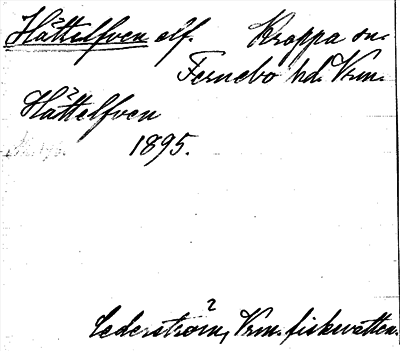 Hättelfven elf. Kroppa sn.
Fernebo hd. Vrm.
Hättelfven
1895.
Cederström, Vrm. fiskevatten.